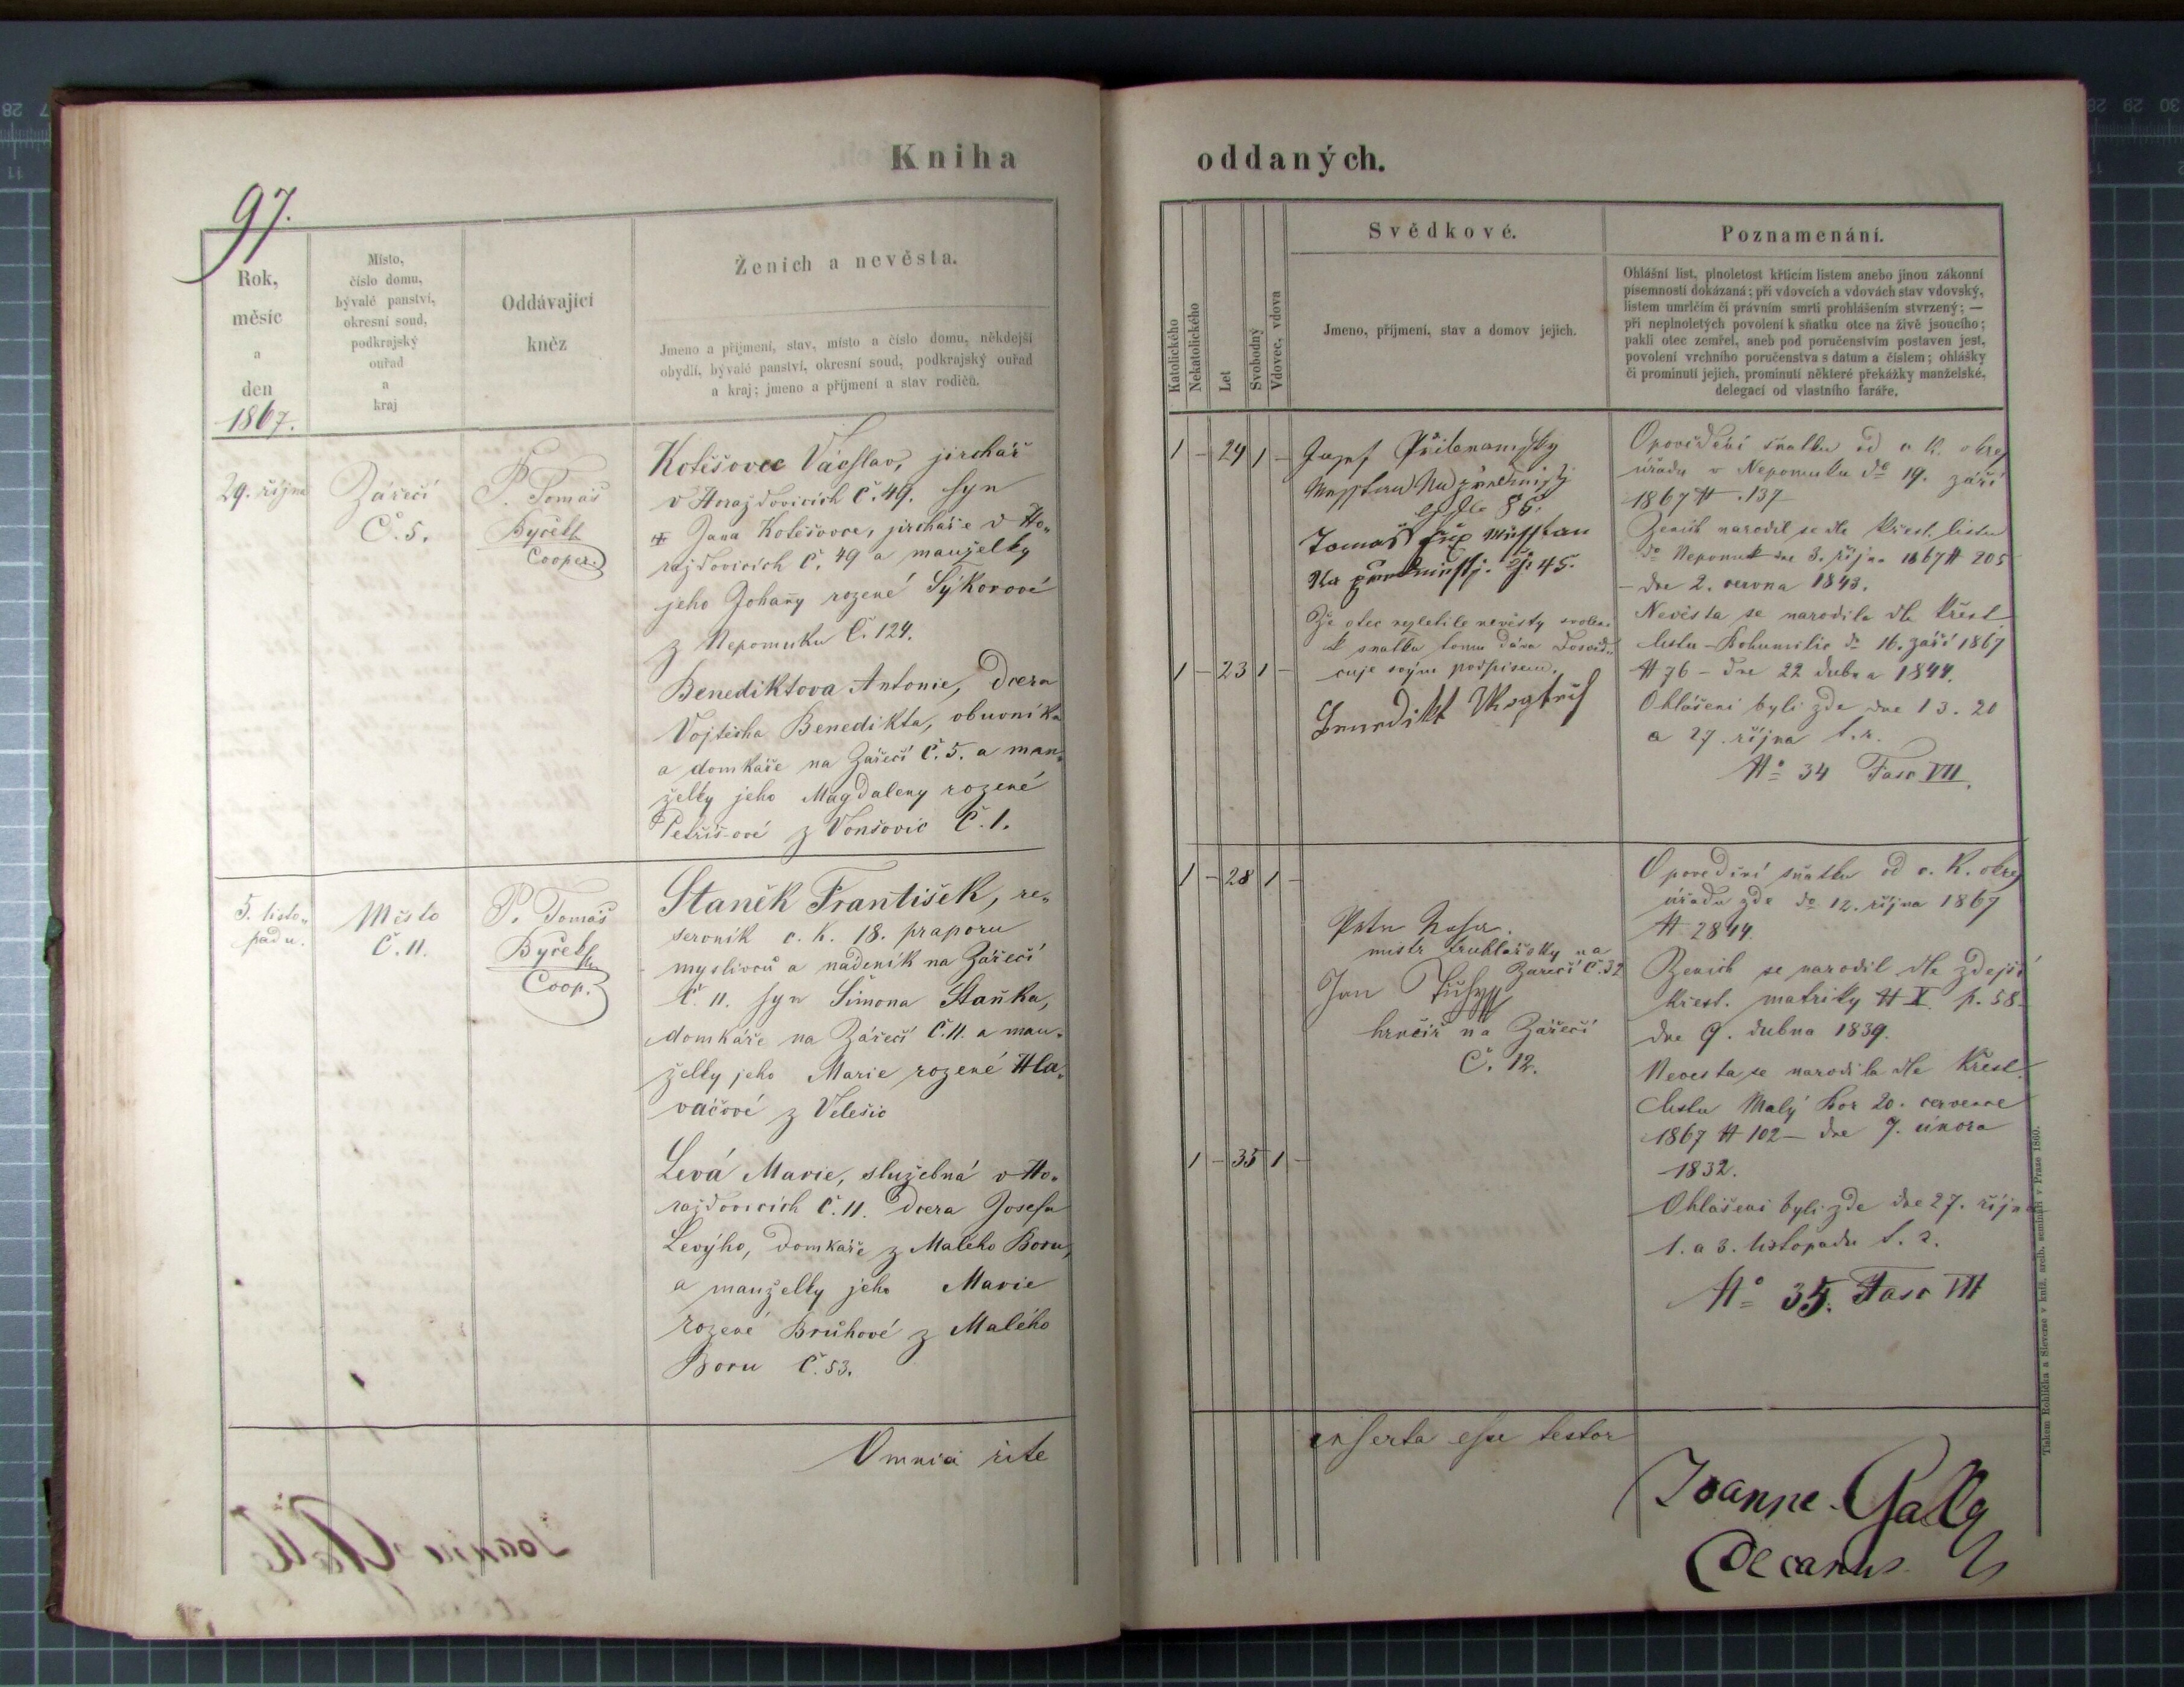 Kniha
97.
Rok,
měsíc
a
den
1867.
Místo,
číslo domu,
bývalé panství,
okresní soud,
podkrajský
ouřad
a
kraj
Oddávající
kněz
Ženich a nevěsta.
Jmeno a příjmení, stav, místo a číslo domu, někdejší
obydlí, bývalé panství, okresní soud, podkrajský ouřad
a kraj; jmeno a příjmení a stav rodičů.
29. října
Zářečí
Č. 5.
P. Tomáš
Byček
Cooper.
Kotěšovec Václav, jirchář
v Horažďovicích Č. 49. syn
Jana Kotěšovce, jircháře v Ho„
ražďovicích Č. 49 a manželky
jeho Johany rozené Sýkorové
z Nepomuku Č. 124.
Benediktova Antonie, dcera
Vojtěcha Benedikta, obuvníka
a domkáře na Zářečí Č. 5. a man„
želky jeho Magdaleny rozené
z Č. 1.
5. listo„
padu.
Město
Č. 11.
P. Tomáš
Byček
Coop.
Staněk František, re„
servník c. k. 18. praporu
myslivců a nádeník na Zářečí
Č. 11. syn Šimona Staňka,
domkáře na Zářečí Č. 11. a man„
želky jeho Marie rozené Hla„
vačové z Velešic
Levá Marie, služebná v Ho„
ražďovicích Č. 11. dcera Josefa
Levýho, domkáře z Malého Boru,
a manželky jeho Marie
rozené Brůhové z Malého
Boru Č. 53.
Omnia rite
oddaných.
Katolického
Nekatolického
Let
Svobodný
Vdovec, vdova
Svědkové.
Jmeno, příjmení, stav a domov jejich.
Poznamenání.
Ohlášní list, plnoletost křticím listem anebo jinou zákonní
písemností dokázaná; při vdovcích a vdovách stav vdovský,
listem umrlčím či právním smrti prohlášením stvrzený; —
při neplnoletých povolení k sňatku otce na živě jsoucího;
pakli otec zemřel, aneb pod poručenstvím postaven jest,
povolení vrchního poručenstva s datum a číslem; ohlášky
či prominutí jejich, prominutí některé překážky manželské,
delegací od vlastního faráře.
1 – 24 1 –
Josef
Tomáš
Na 45.
Že otec nezletilé nevěsty svolení
k sňatku tomu dává dosvěd„
čuje svým podpisem.
1 – 23 1 –
Benedikt
Opovědění sňatku od c. k. okres
úřadu v Nepomuku do 19. září
1867 N. 137
Ženich narodil se dle křest. listu
do Nepomuk dne 3. října 1867 N 205
– dne 2. června 1843.
Nevěsta se narodila dle křest.
listu – Bohumilic do 16. září 1867
N 76 – dne 22 dubna 1844.
Ohlášeni byli zde dne 13. 20
a 27. října t. r.
No 34 Fasc VII.
1 – 28 1 –
Petr
mistr truhlářský na
Zářečí Č. 32
Jan
hrnčíř na Zářečí
Č. 12.
1 – 35 1 –
Opovědění sňatku od c. k. okres
úřadu zde do 12. října 1867
N 2844.
Ženich se narodil dle zdejší
křest. matriky N X p. 58.
dne 9. dubna 1839.
Nevěsta se narodila dle křest.
listu Malý Bor 20. července
1867 N 102 – dne 7. února
1832.
Ohlášeni byli zde dne 27. října
1. a 3. listopadu t. r.
No 35. Fasc VII
inserta esse testor
Joanne Galla
Decanus
Tiskem Rohlíčka a Sieverse v kníž. arcib. semináři v Praze 1860.